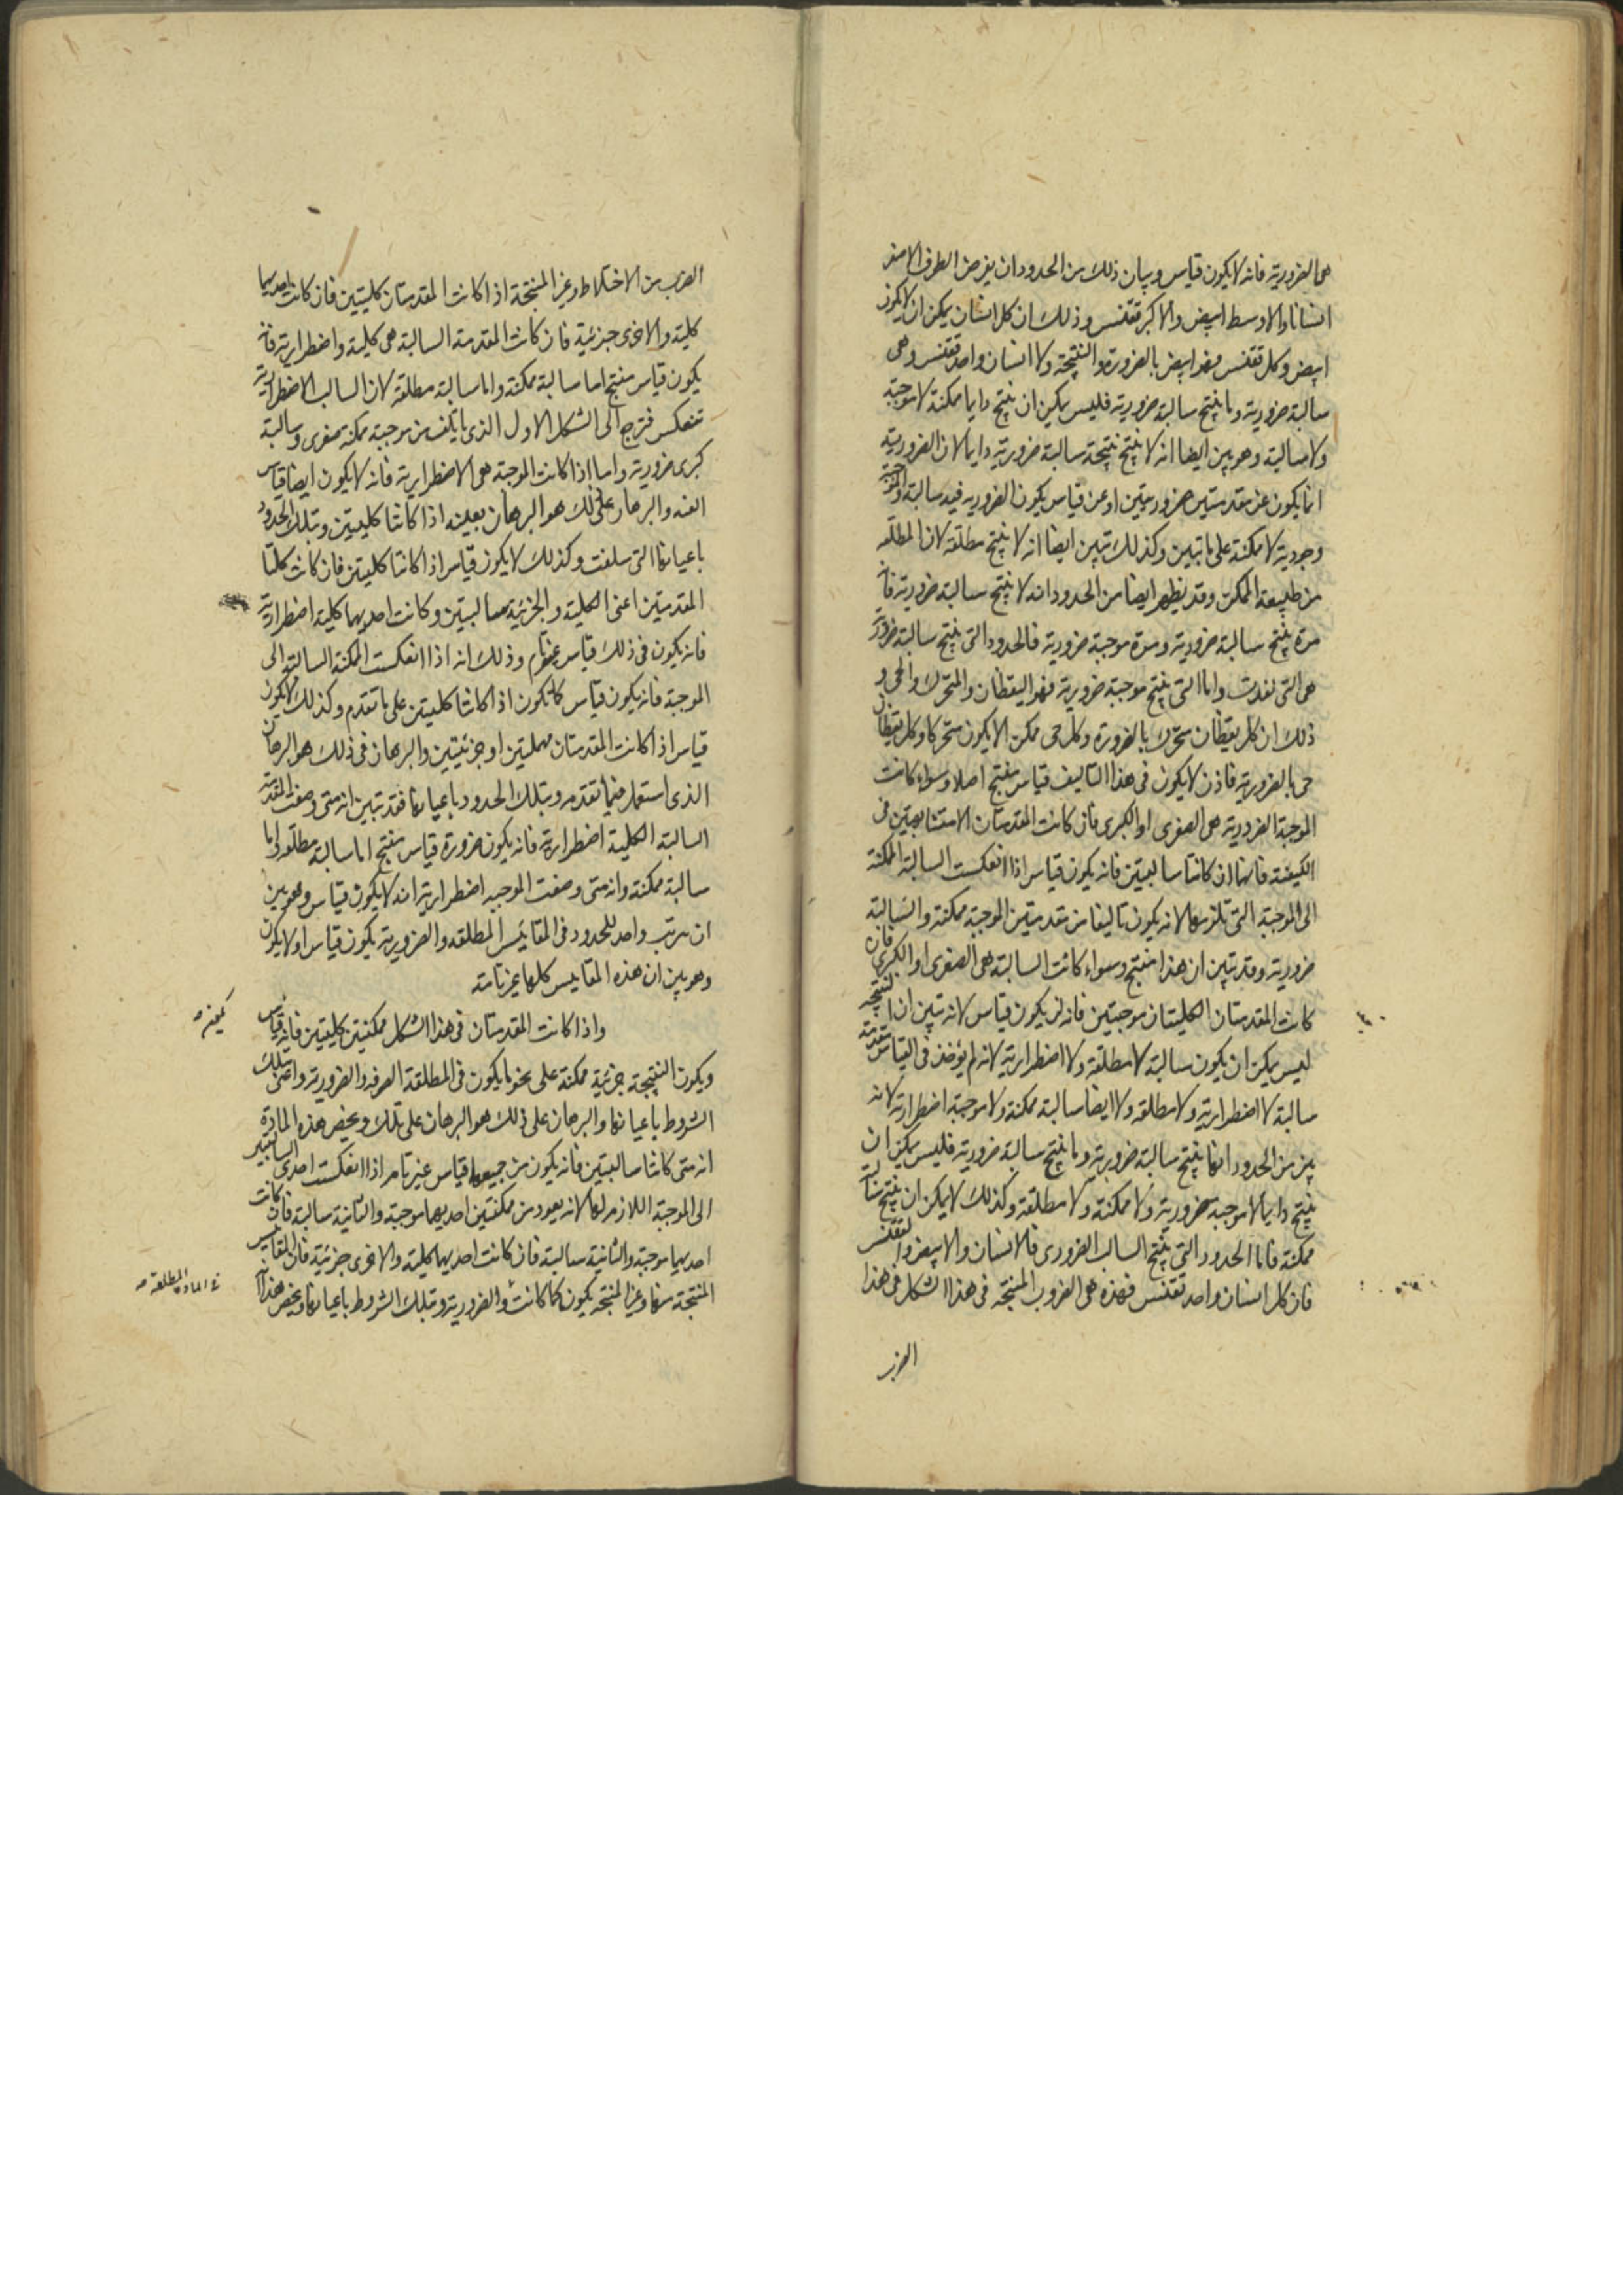 هى الضرورية فانه لا يكون قياس وبيان ذلك من الحدود ان يفرض الطرف الاصغر
انسانا والاوسط ابيض والاكبر ققنس وذلك ان كل انسان يمكن ان لا يكون
ابيض وكل ققنس فهو ابيض بالضرورة والنتيجة ولا انسان واحد ققنس وهى
سالبة ضرورية وما ينتج سالبة ضرورية فليس يمكن ان ينتج دايما ممكنة لا موجبة
ولا سالبة وهو بين ايضا انه لا ينتج نتيجة سالبة ضرورية دايما لان الضرورية
انما يكون عن مقدمتين ضروريتين او عن قياس يكون الضروريه فيه سالبة والموجبة
وجودية لا ممكنة على ما تبين وكذلك تبين ايضا انه لا ينتج مطلقة لان المطلقه
من طبيعة الممكن وقد يظهر ايضا من الحدود انه لا ينتج سالبة ضرورية فانه
مرة ينتج سالبة ضرورية ومرة موجبة ضرورية فالحدود التى ينتج سالبة ضرورية
هى التى تقدمت واما التى ينتج موجبة ضرورية فهو اليقظان والمتحرك والحى و
ذلك ان كل يقظان متحرك بالضرورة وكل حى ممكن الا يكون متحركا وكل يقظان
حى بالضرورية فاذن لا يكون فى هذا التاليف قياس منتج اصلا وسواء كانت
الموجبة الضرورية هى الصغرى او الكبرى فان كانت المقدمتان الا متشابهتين فى
الكيفية فانهما ان كانتا سالبتين فانه يكون قياس اذا انعكست السالبة الممكنة
الى الموجبة التى تلزمها لانه يكون تاليفا من مقدمتين الموجبة ممكنة والسالبة
ضرورية وقد تبين ان هذا منتج وسواء كانت السالبة هى الصغرى او الكبرى فان
كانت المقدمتان الكليتان موجبتين فانه لن يكون قياس لانه تبين ان النتيجة
ليس يمكن ان يكون سالبة لا مطلقة ولا اضطرارية لانه لم يؤخذ فى القياس مقدمة
سالبة لا اضطرارية ولا مطلقه ولا ايضا سالبة ممكنة ولا موجبة اضطرارية لانه
بين من الحدود انها ينتج سالبة ضرورية وما ينتج سالبة ضرورية فليس يمكن ان
ينتج دايما لا موجبة ضرورية ولا ممكنة ولا مطلقة وكذلك لا يمكن ان ينتج سالبة
ممكنة فاما الحدود التى ينتج السالب الضرورى فالانسان والابيض والققنس
فان كل انسان واحد ققنس فهذه هى الضروب المنتجة فى هذا الشكل فى هذا
الضرب
الضرب من الاختلاط وغير المنتجة اذا كانت المقدمتان كليتين فان كانت احديهما
كلية والاخرى جزئية فان كانت المقدمة السالبة هى كلية واضطرارية فانه
يكون قياس منتج اما سالبة ممكنة واما سالبة مطلقة لان السالب الاضطرارية
تنعكس فترجع الى الشكل الاول الذى يأتلف من موجبة ممكنة صغرى وسالبة
كبرى ضرورية واما اذا كانت الموجبة هى الاضطرارية فانه لا يكون ايضا قياس
البتة والبرهان على ذلك هو البرهان بعينه اذا كانتا كليتين وبتلك الحدود
باعيانها التى سلفت وكذلك لا يكون قياس اذا كانتا كليتين فان كانت كلتا
المقدمتين اعنى الكلية والجزئية سالبتين وكانت احديهما كلية اضطرارية
فانه يكون فى ذلك قياس غير تام وذلك انه اذا انعكست الممكنة السالبة الى
الموجبة فانه يكون قياس كما تكون اذا كانتا كليتين على ما تقدم وكذلك لا يكون
قياس اذا كانت المقدمتان مهملتين او جزئيتين والبرهان فى ذلك هو البرهان
الذى استعمل فيما تقدم وبتلك الحدود باعيانها فقد تبين انه متى وضعت المقدمة
السالبة الكلية اضطرارية فانه يكون ضرورة قياس منتج اما سالبة مطلقه او اما
سالبة ممكنة وانه متى وضعت الموجبه اضطرارية انه لا يكون قياس وهو بين
ان مرتب واحد للحدود فى المقائيس المطلقه والضرورية يكون قياس او لا يكون
وهو بين ان هذه المقاييس كلها غير تامة
واذا كانت المقدمتان فى هذا الشكل ممكنتين كليتين فانه قياس
ويكون النتيجة جزئية ممكنة على نحو ما يكون فى المطلقة الصرفه والضرورية واعنى بتلك
الشروط باعيانها والبرهان على ذلك هو البرهان على تلك ويخص هذه المادة
انه متى كانتا سالبتين فانه يكون من جميعها قياس غير تام اذا انعكست احدى السالبتين
الى الموجبة اللازم لها لانه يعود من ممكنتين احديهما موجبة والثانية سالبة فان كانت
احديهما موجبة والثانية سالبة فان كانت احديهما كلية والاخرى جزئية فان المقاييس
المنتجة منها وغير المنتجه يكون كما كانت والضرورية وبتلك الشروط باعيانها ويخص هذا
فى المادة المطلقة